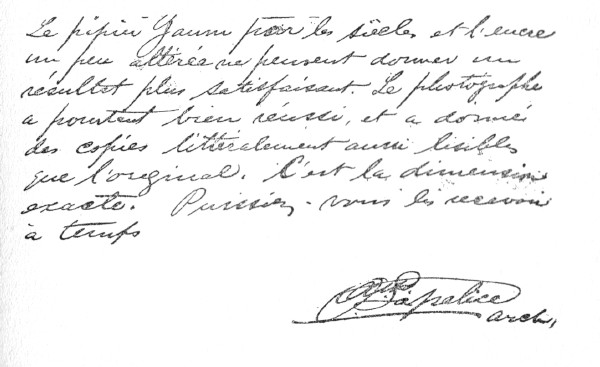 Le papier jauni par les siècles et l'encre
un peu altérée ne peuvent donner un
résultat plus satisfaisant. Le photographe
a pourtant bien réussi, et a donné
des copies littéralement aussi lisibles
que l'original. C'est la dimension
exacte. Puissiez-vous les recevoir
à temps
Lapalice
arch.